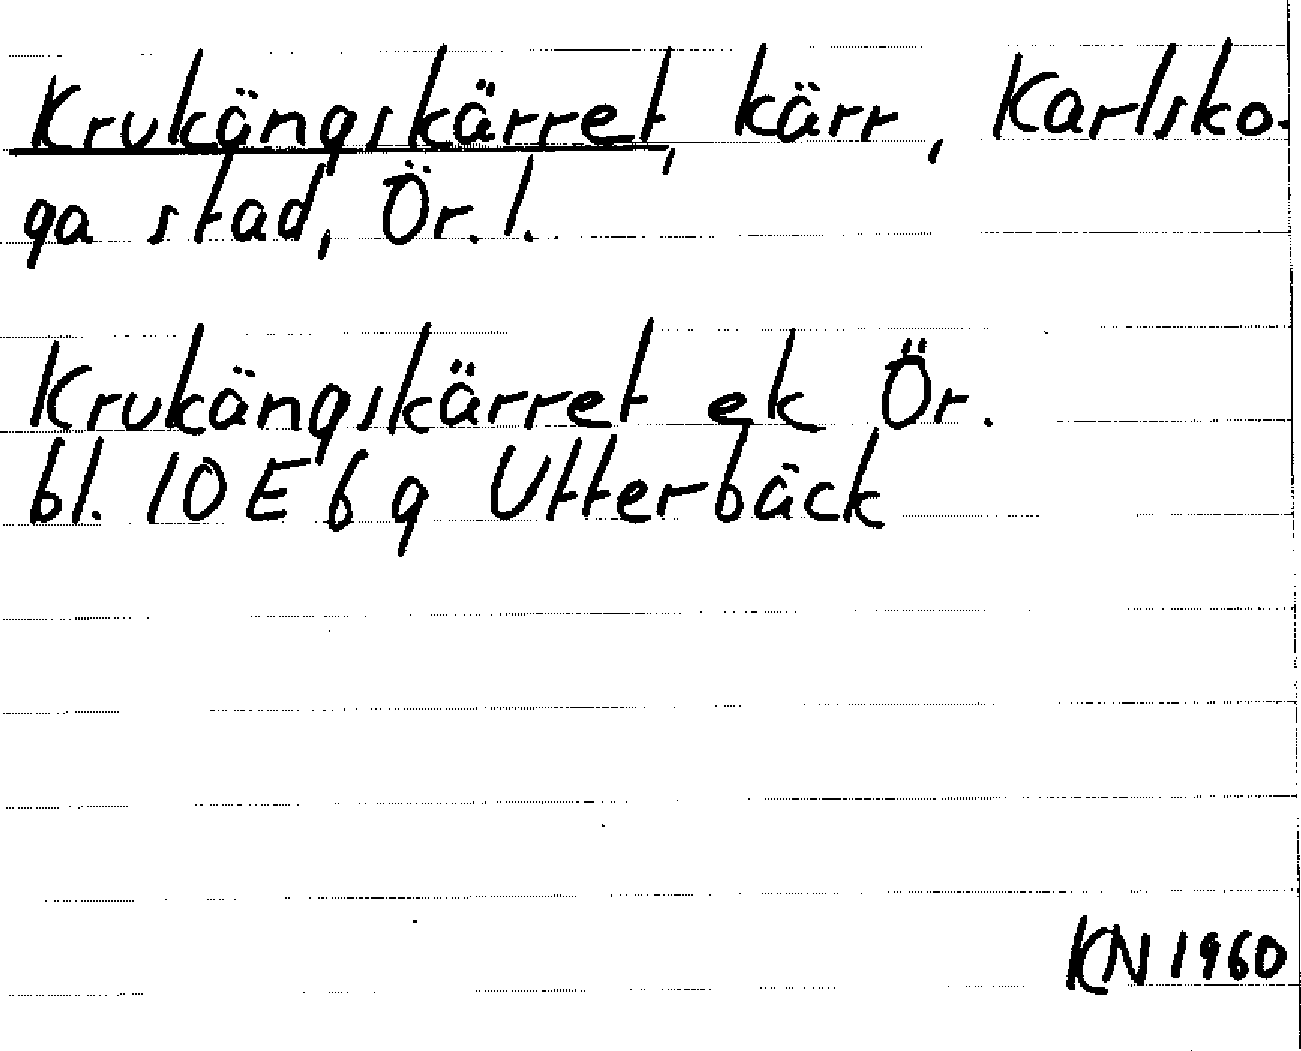 Krukängskärret, kärr, Karlsko-
ga stad, Ör. l.
Krukängskärret ek Ör.
bl. 10 E 6 g Utterbäck
KN 1960